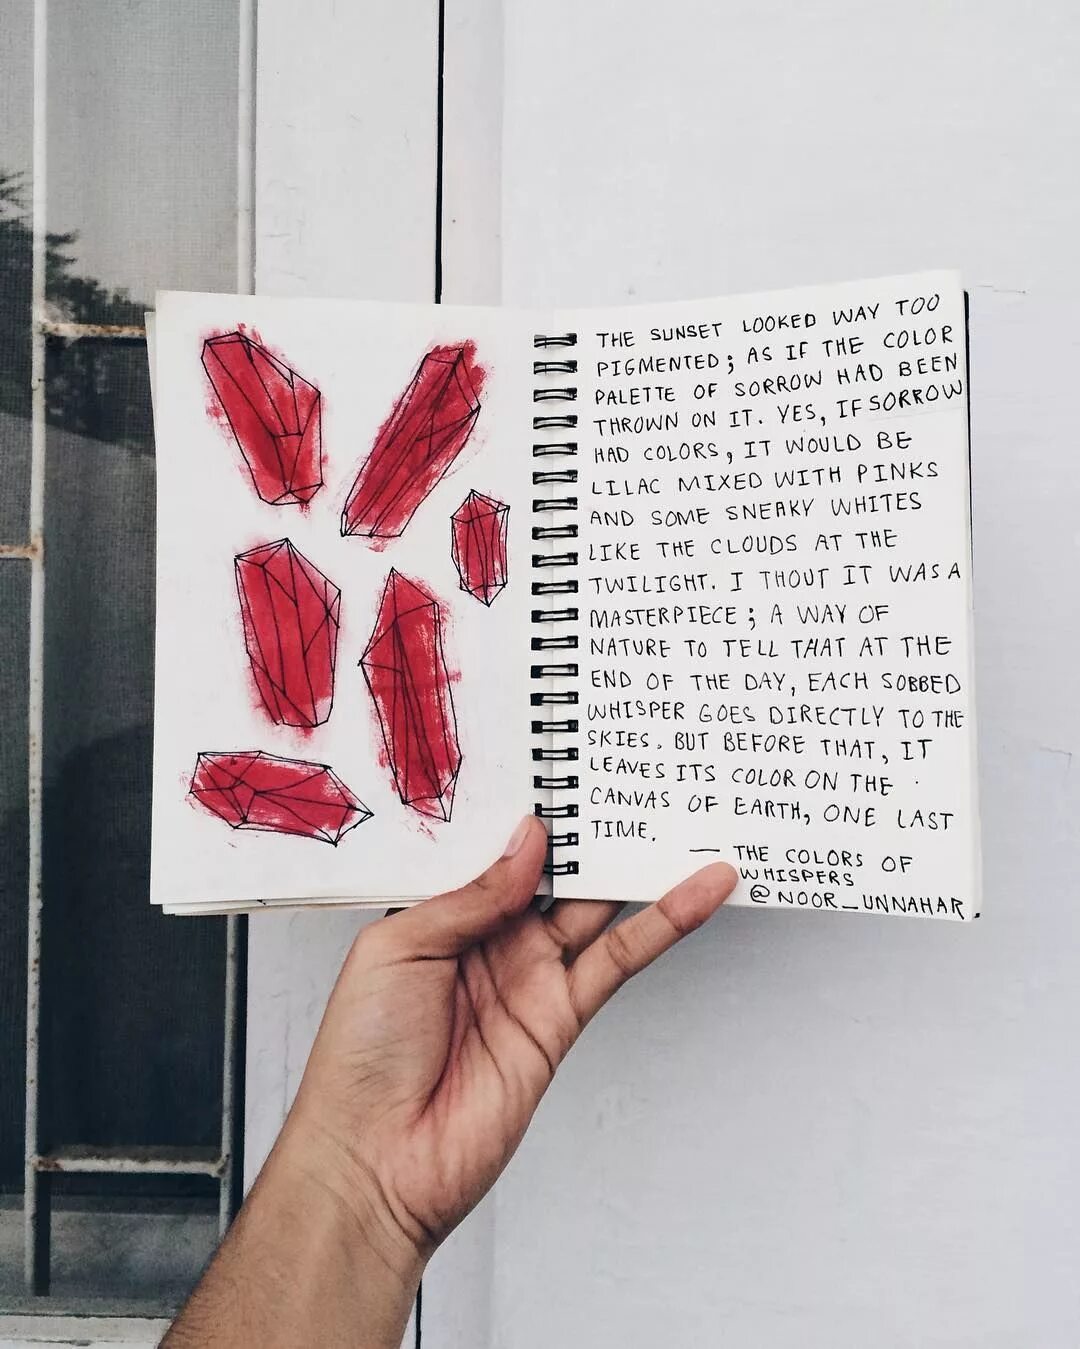 THE SUNSET LOOKED WAY TOO
PIGMENTED; AS IF THE COLOR
PALETTE OF SORROW HAD BEEN
THROWN ON IT. YES, IF SORROW
HAD COLORS, IT WOULD BE
LILAC MIXED WITH PINKS
AND SOME SNEAKY WHITES
LIKE THE CLOUDS AT THE
TWILIGHT. I THOUT IT WAS A
MASTERPIECE; A WAY OF
NATURE TO TELL THAT AT THE
END OF THE DAY, EACH SOBBED
WHISPER GOES DIRECTLY TO THE
SKIES. BUT BEFORE THAT, IT
LEAVES ITS COLOR ON THE
CANVAS OF EARTH, ONE LAST
TIME.
— THE COLORS OF
WHISPERS
@NOOR_UNNAHAR